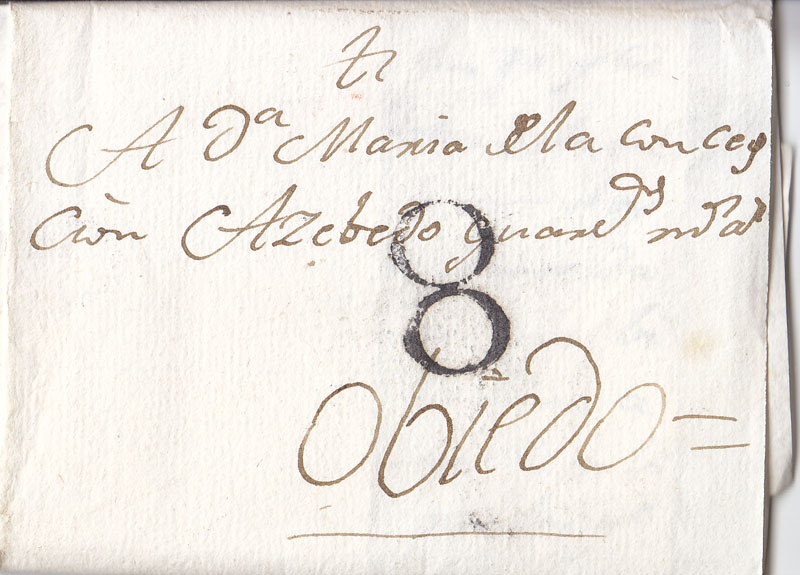 A Dª Maria de la Concep
cion Azebedo guarde
8
Obiedo =